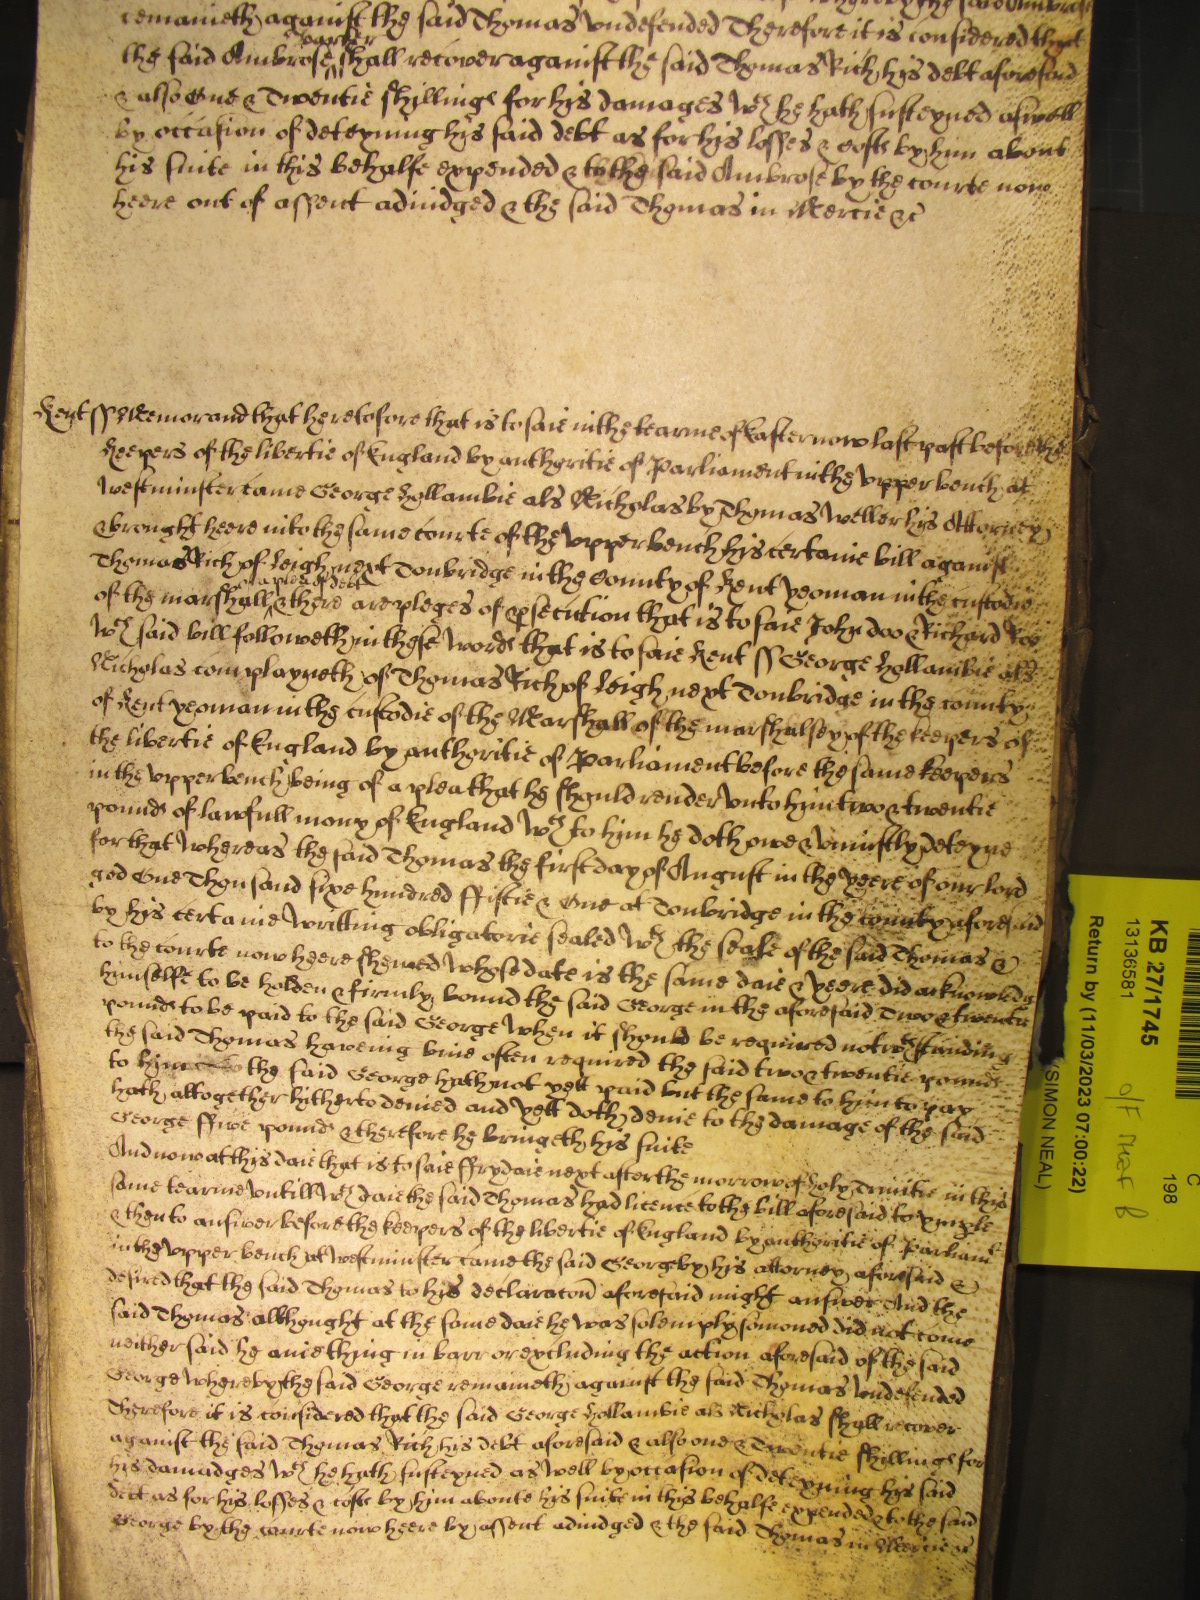 remaineth against the said Thomas vndefended Therefore it is considered that
the said Ambrose parker shall recover against the said Thomas Rich his debt aforesaid
& also One & Twentie shillinges for his damages wch he hath susteyned aswell
by occasion of deteyning his said debt as for his losses & costs by him about
his suite in this behalfe expended & to the said Ambrose by the courte now
heere out of assent adiudged & the said Thomas in Mercie &c
Kent ss Memorand that heretofore that is to saie in the tearme of Easter now last past before the
Keepers of the libertie of England by authoritie of Parliament in the vpper bench at
Westminster came George Hollambie als Nicholas by Thomas Weller his Attorney
& brought heere into the same courte of the vpper bench his certaine bill against
Thomas Rich of Leigh next Tonbridge in the County of Kent yeoman in the custodie
of a plea of debt
of the marshall & there are pleges of psecution that is to saie John doo & Richard Roo
wch said bill followeth in these words that is to saie Kent ss George Hollambie als
Nicholas complayneth of Thomas Rich of Leigh next Tonbridge in the county
of Kent yeoman in the custodie of the Marshall of the marshalsey of the keepers of
the libertie of England by authoritie of Parliament before the same keepers
in the vpper bench being of a plea that he should render vnto him two & twentie
pounds of lawfull mony of England wch to him he doth owe & vniustly deteyne
for that whereas the said Thomas the first day of August in the yeere of our lord
god One Thousand sixe hundred ffiftie & One at Tonbridge in the county aforesaid
by his certaine writting obligatorie sealed wth the seale of the said Thomas &
to the courte now heere shewed whose date is the same daie & yeere did acknowledg
himselfe to be holden & firmly bound the said George in the aforesaid Two & twentie
pounds to be paid to the said George when it should be required notwthstanding
the said Thomas haveing bine often required the said two & twentie pounds
to the said George hath not yett paid but the same to him to pay
hath altogether hitherto denied and yett doth denie to the damage of the said
George ffive pounds & therefore he bringeth his suite
And now at this daie that is to saie ffrydaie next after the morrow of holy Trinitie in this
same tearme vntill wch daie the said Thomas had licence to the bill aforesaid to emple
& then to answer before the keepers of the libertie of England by authoritie of Parliamt
in the vpper bench at Westminster came the said George by his attorney aforesaid &
desired that the said Thomas to his declaracon aforesaid might answer And the
said Thomas althought at the same daie he was solemply somoned did not come
neither said he aniething in barr or excluding the action aforesaid of the said
George whereby the said George remaineth against the said Thomas vndefended
Therefore it is considered that the said George Hollambie als Nicholas shall recover
against the said Thomas Rich his debt aforesaid & also one & Twentie shillings for
his damadges wch he hath susteyned as well by occasion of deteyning his said
debt as for his losses & costs by him aboute his suite in this behalfe expended & to the said
George by the courte now heere by assent adiudged & the said Thomas in Mercie &c
C
198
KB 27/1745
13136581
O/F Map B
Return by (11/03/2023 07:00:22)
(SIMON NEAL)